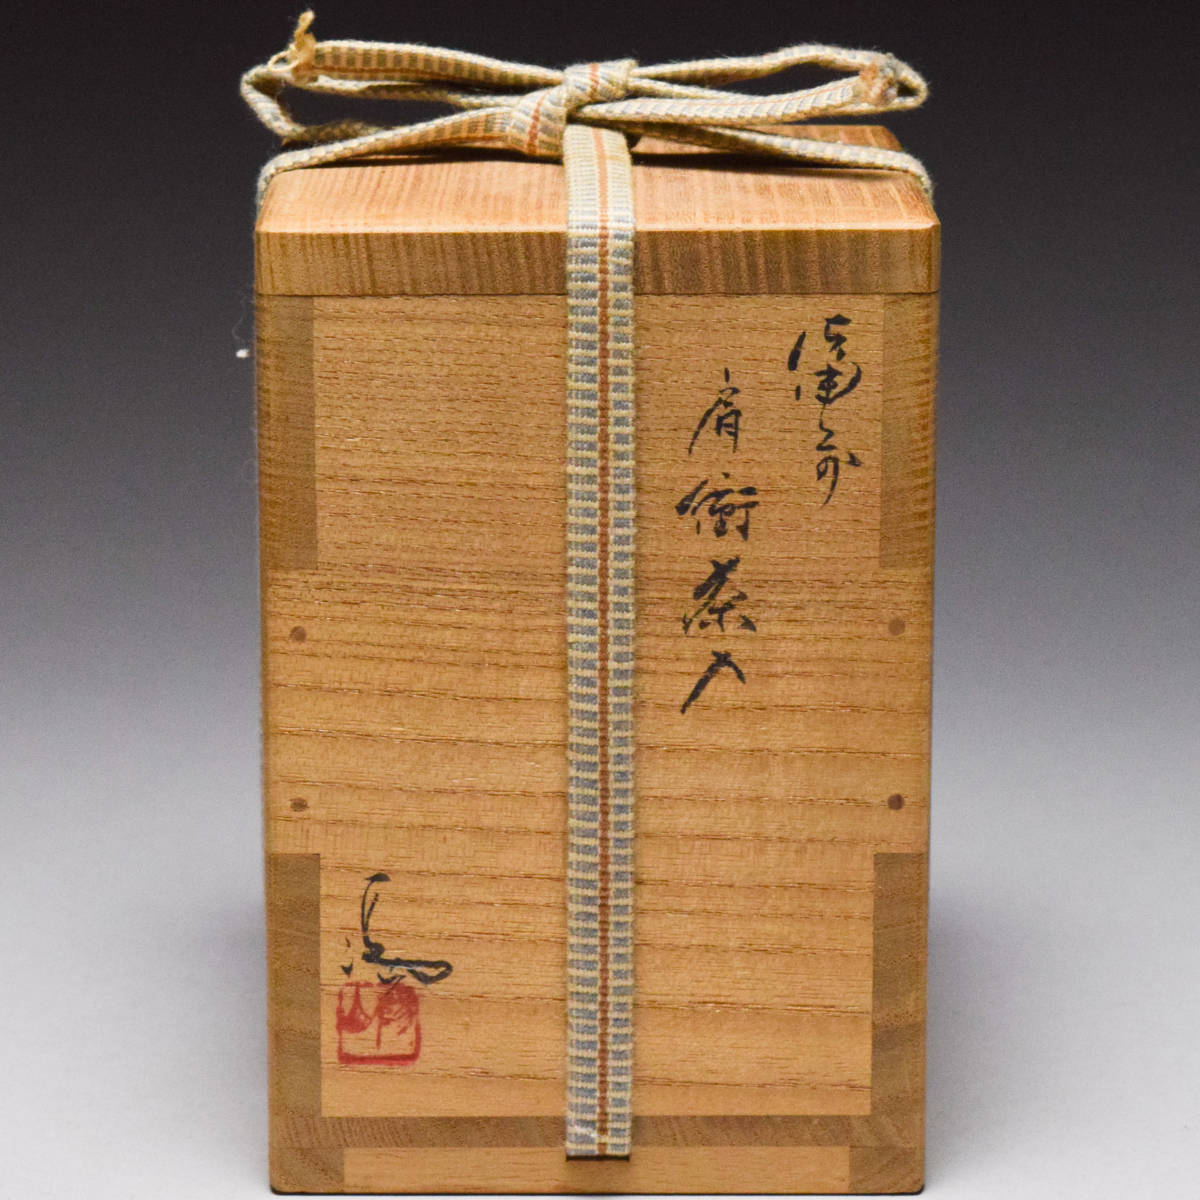 備前
肩衝茶入